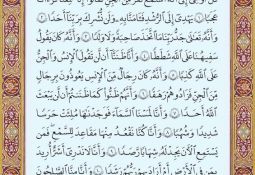 عَجَبًا ۝١ يَهْدِىٓ إِلَى ٱلرُّشْدِ فَـَٔامَنَّا بِهِۦ وَلَن نُّشْرِكَ بِرَبِّنَآ أَحَدًا ۝٢
وَأَنَّهُۥ تَعَـٰلَىٰ جَدُّ رَبِّنَا مَا ٱتَّخَذَ صَـٰحِبَةً وَلَا وَلَدًا ۝٣ وَأَنَّهُۥ كَانَ يَقُولُ
سَفِيهُنَا عَلَى ٱللَّهِ شَطَطًا ۝٤ وَأَنَّا ظَنَنَّآ أَن لَّن تَقُولَ ٱلْإِنسُ وَٱلْجِنُّ
عَلَى ٱللَّهِ كَذِبًا ۝٥ وَأَنَّهُۥ كَانَ رِجَالٌ مِّنَ ٱلْإِنسِ يَعُوذُونَ بِرِجَالٍ
مِّنَ ٱلْجِنِّ فَزَادُوهُمْ رَهَقًا ۝٦ وَأَنَّهُمْ ظَنُّوا۟ كَمَا ظَنَنتُمْ أَن لَّن يَبْعَثَ
ٱللَّهُ أَحَدًا ۝٧ وَأَنَّا لَمَسْنَا ٱلسَّمَآءَ فَوَجَدْنَـٰهَا مُلِئَتْ حَرَسًا
شَدِيدًا وَشُهُبًا ۝٨ وَأَنَّا كُنَّا نَقْعُدُ مِنْهَا مَقَـٰعِدَ لِلسَّمْعِ فَمَن
يَسْتَمِعِ ٱلْـَٔانَ يَجِدْ لَهُۥ شِهَابًا رَّصَدًا ۝٩ وَأَنَّا لَا نَدْرِىٓ أَشَرٌّ أُرِيدَ
بِمَن فِى ٱلْأَرْضِ أَمْ أَرَادَ بِهِمْ رَبُّهُمْ رَشَدًا ۝١٠ وَأَنَّا مِنَّا ٱلصَّـٰلِحُونَ